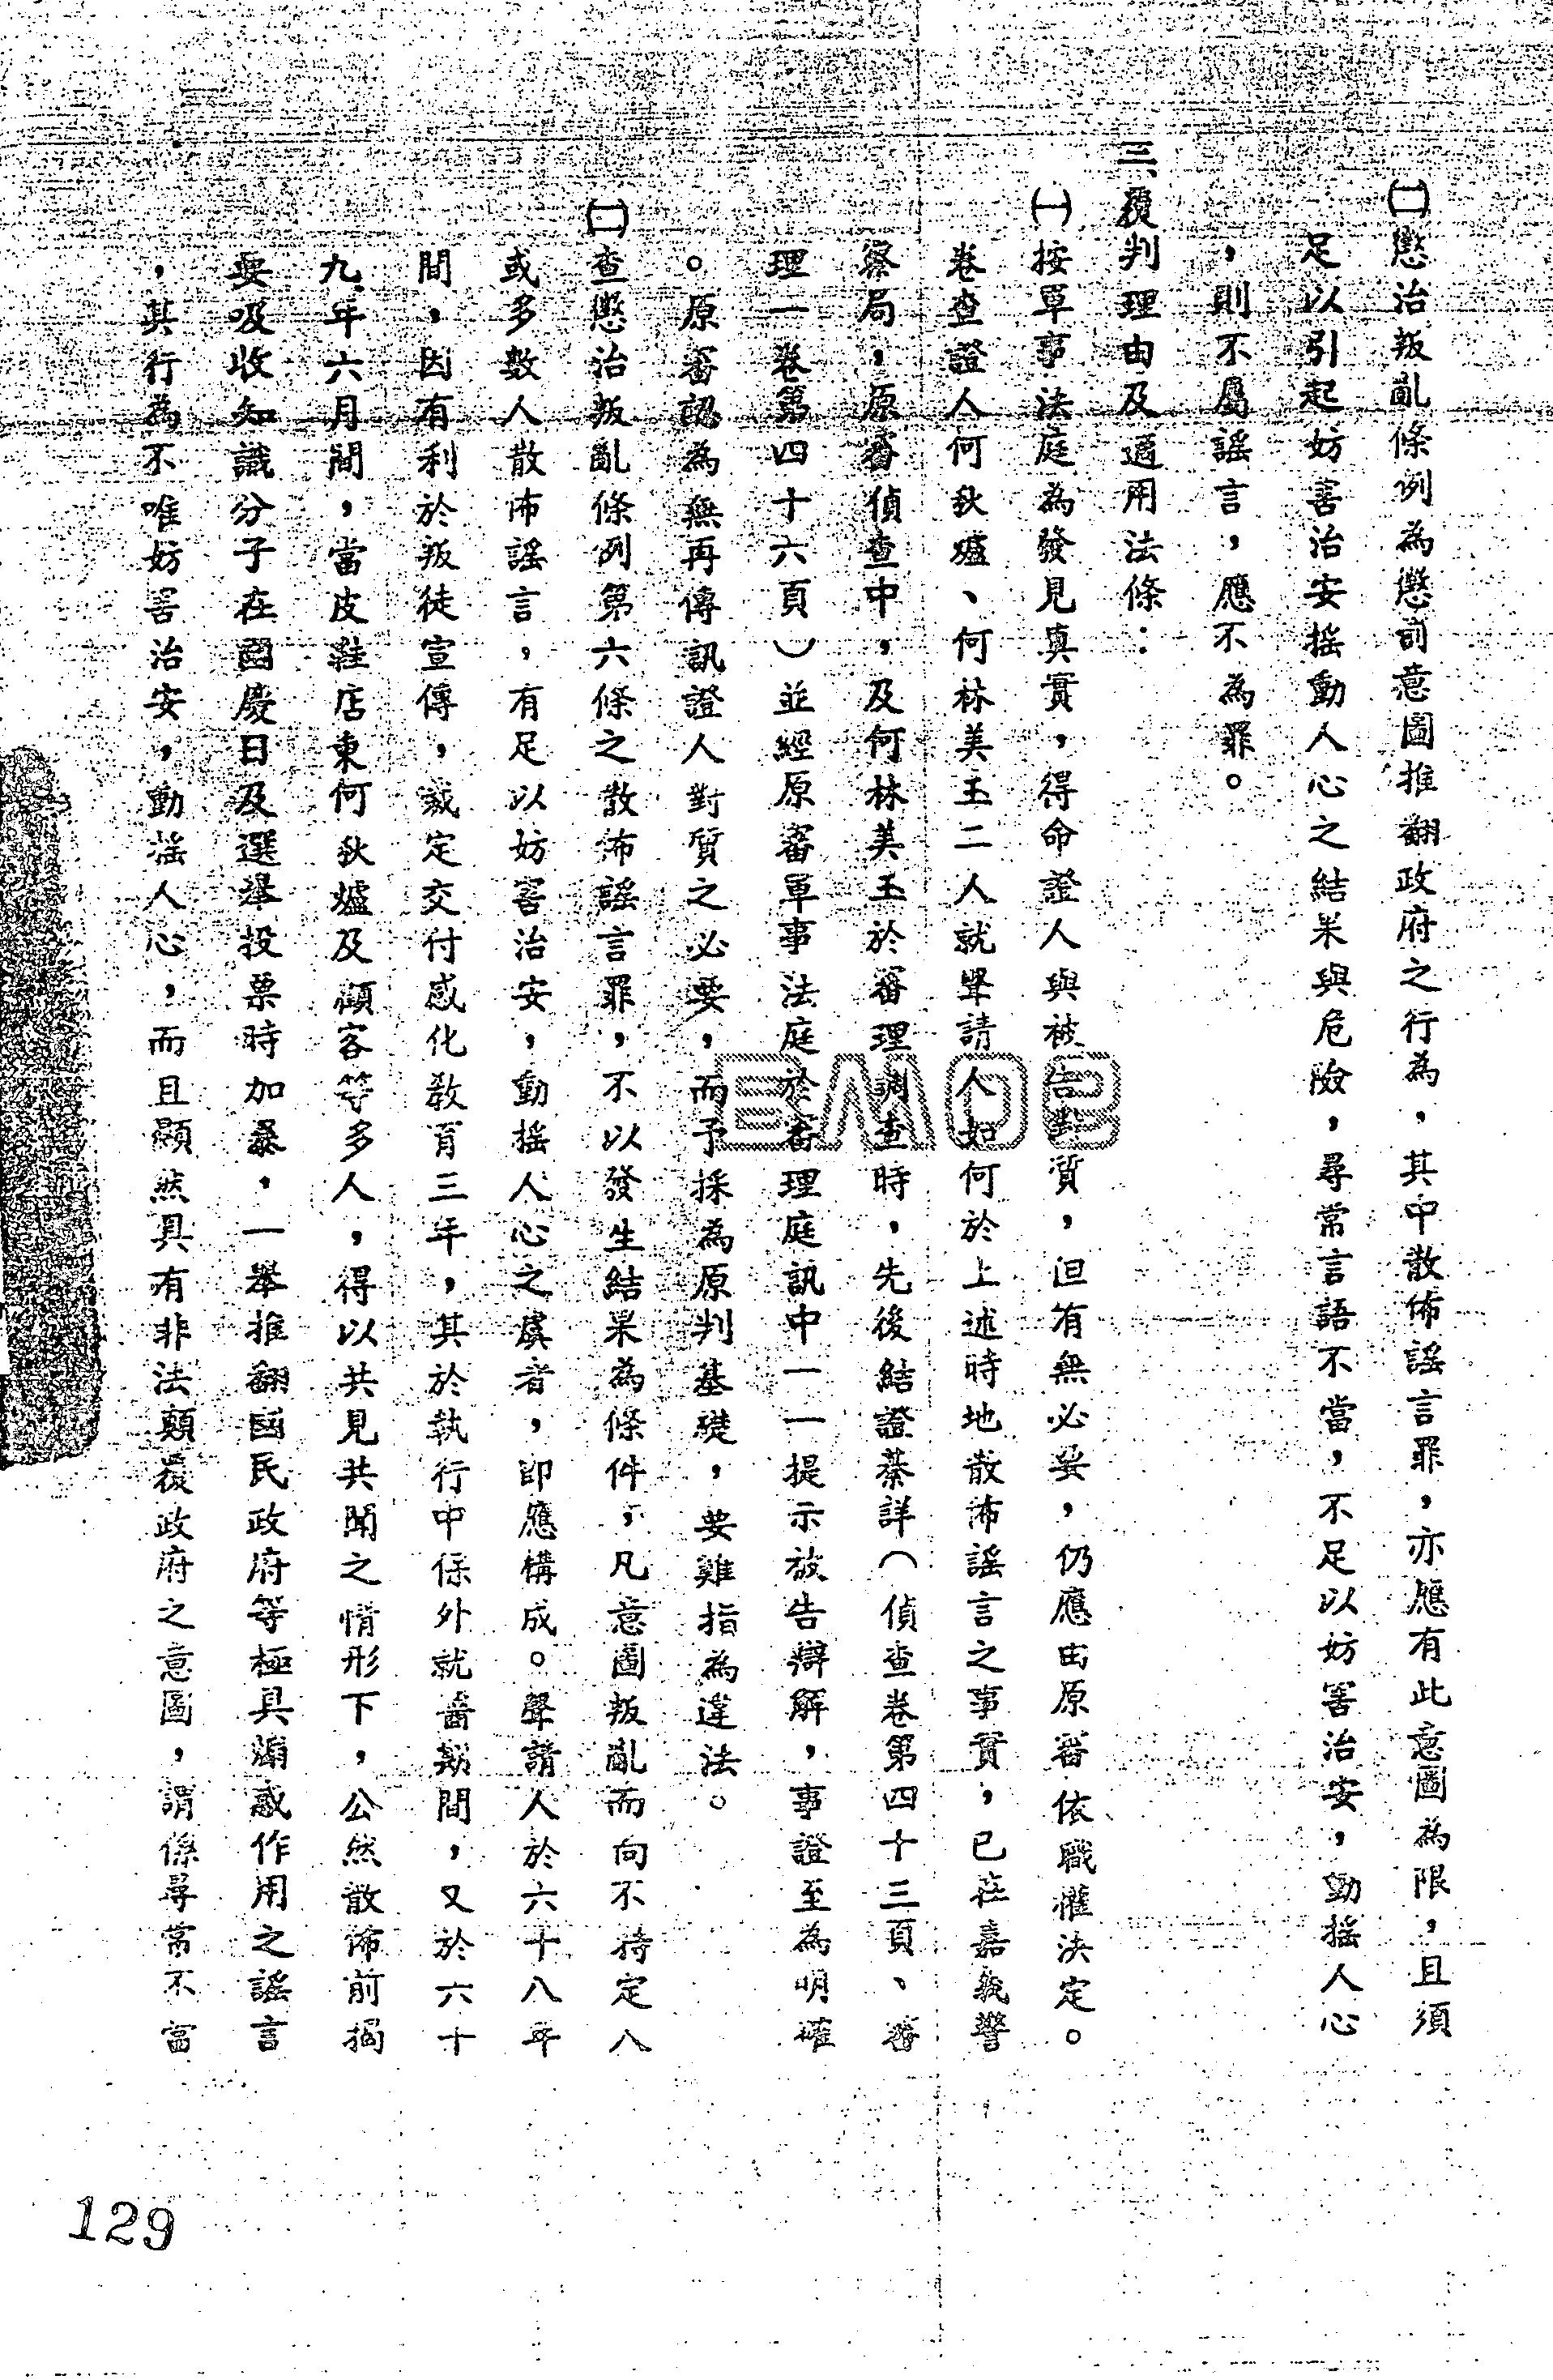 ㈡懲治叛亂條例為懲前意圖推翻政府之行為，其中散佈謠言罪，亦應有此意圖為限，且須
足以引起妨害治安搖動人心之結果與危險，尋常言語不當，不足以妨害治安，動搖人心
，則不屬謠言，應不為罪。
三、覆判理由及適用法條：
㈠按軍事法庭為發見真實，得命證人與被告對質，但有無必要，仍應由原審依職權決定。
卷查證人何秋爐、何林美玉二人就聲請人如何於上述時地散佈謠言之事實，已在嘉義警
察局，原審偵查中，及何林美玉於審理調查時，先後結證綦詳（偵查卷第四十三頁、審
理一卷第四十六頁）並經原審軍事法庭於審理庭訊中一一提示放告辯解，事證至為明確
。原審認為無再傳訊證人對質之必要，而予採為原判基礎，要難指為違法。
㈡查懲治叛亂條例第六條之散佈謠言罪，不以發生結果為條件，凡意圖叛亂而向不特定人
或多數人散佈謠言，有足以妨害治安，動搖人心之虞者，即應構成。聲請人於六十八年
間，因有利於叛徒宣傳，裁定交付感化教育三年，其於執行中保外就醫期間，又於六十
九年六月間，當皮鞋店東何秋爐及顧客等多人，得以共見共聞之情形下，公然散佈前揭
要吸收知識分子在國慶日及選舉投票時加暴，一舉推翻國民政府等極具煽惑作用之謠言
，其行為不唯妨害治安，動搖人心，而且顯然具有非法顛覆政府之意圖，謂係尋常不當
129